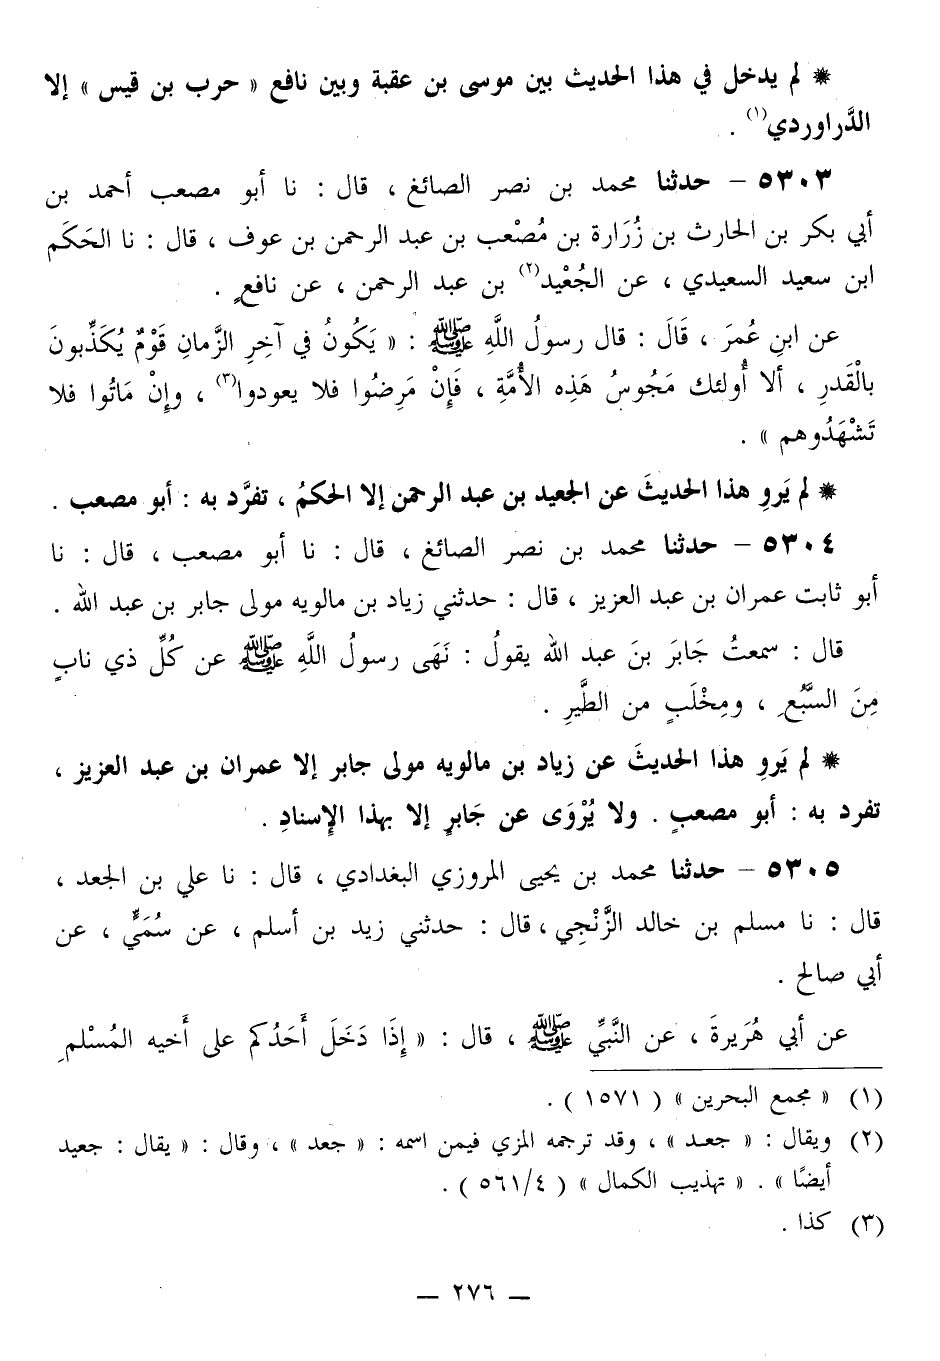 * لم يدخل في هذا الحديث بين موسى بن عقبة وبين نافع « حرب بن قيس » إلا
الدَّراوردي(١) .
٥٣٠٣ – حدثنا محمد بن نصر الصائغ ، قال : نا أبو مصعب أحمد بن
أبي بكر بن الحارث بن زُرَارة بن مُصْعب بن عبد الرحمن بن عوف ، قال : نا الحَكَم
ابن سعيد السعيدي ، عن الجُعْيد(٢) بن عبد الرحمن ، عن نافعٍ .
عن ابنِ عُمرَ ، قَالَ : قال رسولُ اللَّهِ ﷺ : « يَكُونُ في آخِرِ الزَّمانِ قَوْمٌ يُكَذِّبونَ
بالْقَدرِ ، ألا أُولئك مَجُوسُ هَذِه الأُمَّةِ ، فَإِنْ مَرِضُوا فلا يعودوا(٣) ، وإِنْ مَاتُوا فلا
تَشْهَدُوهم » .
* لم يَروِ هذا الحديثَ عن الجعيد بن عبد الرحمن إلا الحكمُ ، تفرَّد به : أبو مصعب .
٥٣٠٤ – حدثنا محمد بن نصر الصائغ ، قال : نا أبو مصعب ، قال : نا
أبو ثابت عمران بن عبد العزيز ، قال : حدثني زياد بن مالويه مولى جابر بن عبد الله .
قال : سمعتُ جَابَرَ بنَ عبد الله يقولُ : نَهَى رسولُ اللَّهِ ﷺ عن كُلِّ ذي نابٍ
مِنَ السَّبُعِ ، ومِخْلَبٍ من الطَّيرِ .
* لم يَروِ هذا الحديثَ عن زياد بن مالويه مولى جابر إلا عمران بن عبد العزيز ،
تفرد به : أبو مصعبٍ . ولا يُرْوَى عن جَابرٍ إلا بهذا الإِسنادِ .
٥٣٠٥ – حدثنا محمد بن يحيى المروزي البغدادي ، قال : نا علي بن الجعد ،
قال : نا مسلم بن خالد الزَّنْجِي ، قال : حدثني زيد بن أسلم ، عن سُمَيٍّ ، عن
أبي صالح .
عن أبي هُرَيرةَ ، عن النَّبيِّ ﷺ ، قال : « إِذَا دَخَلَ أَحَدُكم على أَخيه المُسْلم
(١) « مجمع البحرين » ( ١٥٧١ ) .
(٢) ويقال : « جعد » ، وقد ترجمه المزي فيمن اسمه : « جعد » ، وقال : « يقال : جعيد
أيضًا » . « تهذيب الكمال » ( ٥٦١/٤ ) .
(٣) كذا .
– ٢٧٦ –